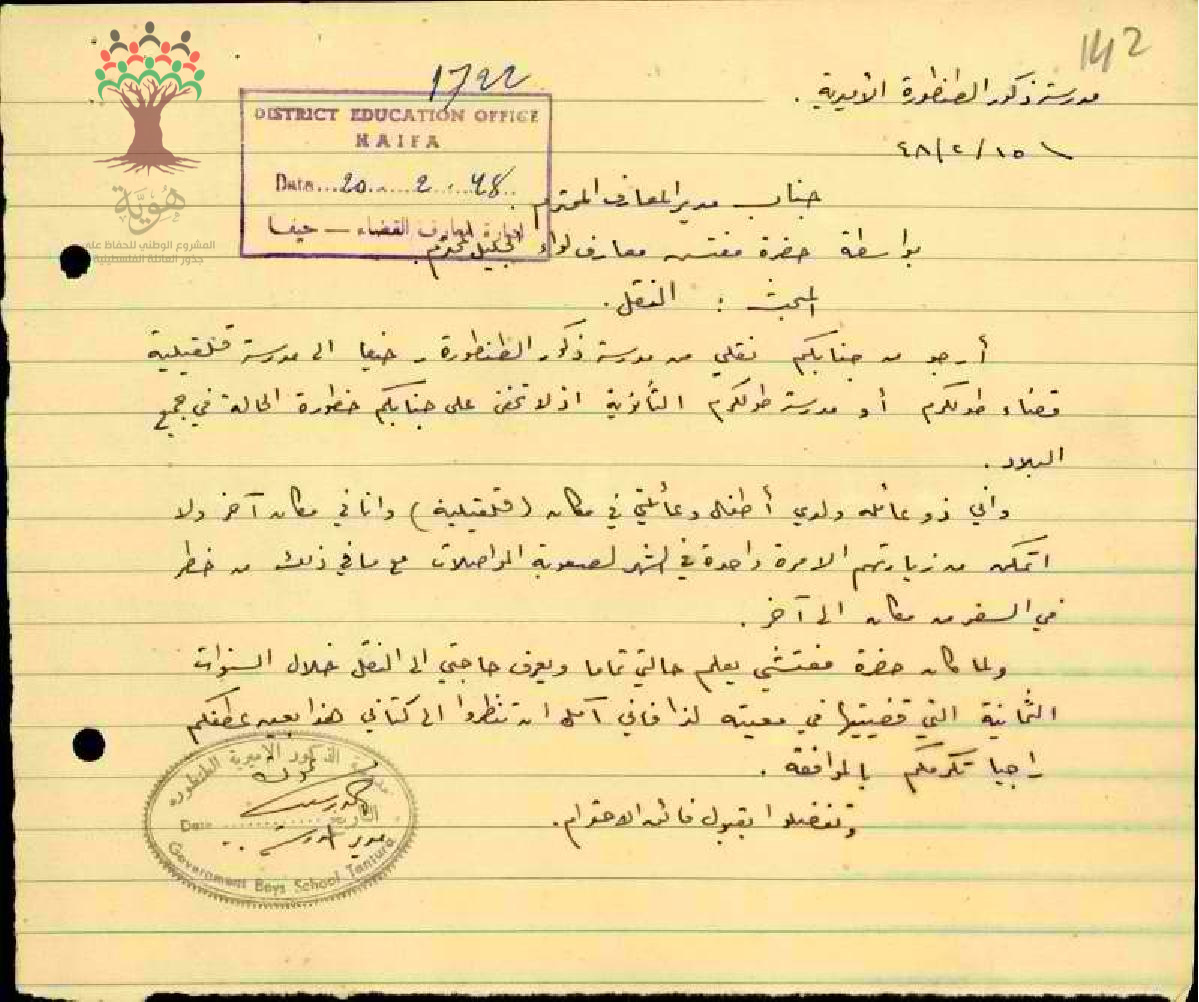 142
مدرسة ذكور الطنطورة الأميرية.
١٥/٢/٤٨
1722
DISTRICT EDUCATION OFFICE
HAIFA
Date 20. 2. 48
ادارة معارف القضاء - حيفا
هُوِيَّة
المشروع الوطني للحفاظ على
جذور العائلة الفلسطينية
جناب مدير المعارف المحترم.
بواسطة حضرة مفتش معارف لواء الجليل المحترم.
المبحث : النقل.
أرجو من جنابكم نقلي من مدرسة ذكور الطنطورة - حيفا الى مدرسة قلقيلية
قضاء طولكرم أو مدرسة طولكرم الثانوية اذ لا تخفى على جنابكم خطورة الحالة في جميع
البلاد.
واني ذو عائله ولدي أطفال وعائلتي في مكان (قلقيلية) وانا في مكان آخر ولا
اتمكن من زيارتهم الا مرة واحدة في الشهر لصعوبة المواصلات مع ما في ذلك من خطر
في السفر من مكان الى آخر.
ولما كان حضرة مفتشي يعلم حالتي تماما ويعرف حاجتي الى النقل خلال السنوات
الثمانية التي قضيتها في معيته لذا فاني آمل ان تنظروا الى كتابي هذا بعين عطفكم
راجيا تكرمكم بالموافقة.
وتفضلوا بقبول فائق الاحترام.
مدرسة الذكور الاميرية الطنطوره
التاريخ
Date
مدير المدرسة
Government Boys School Tantura